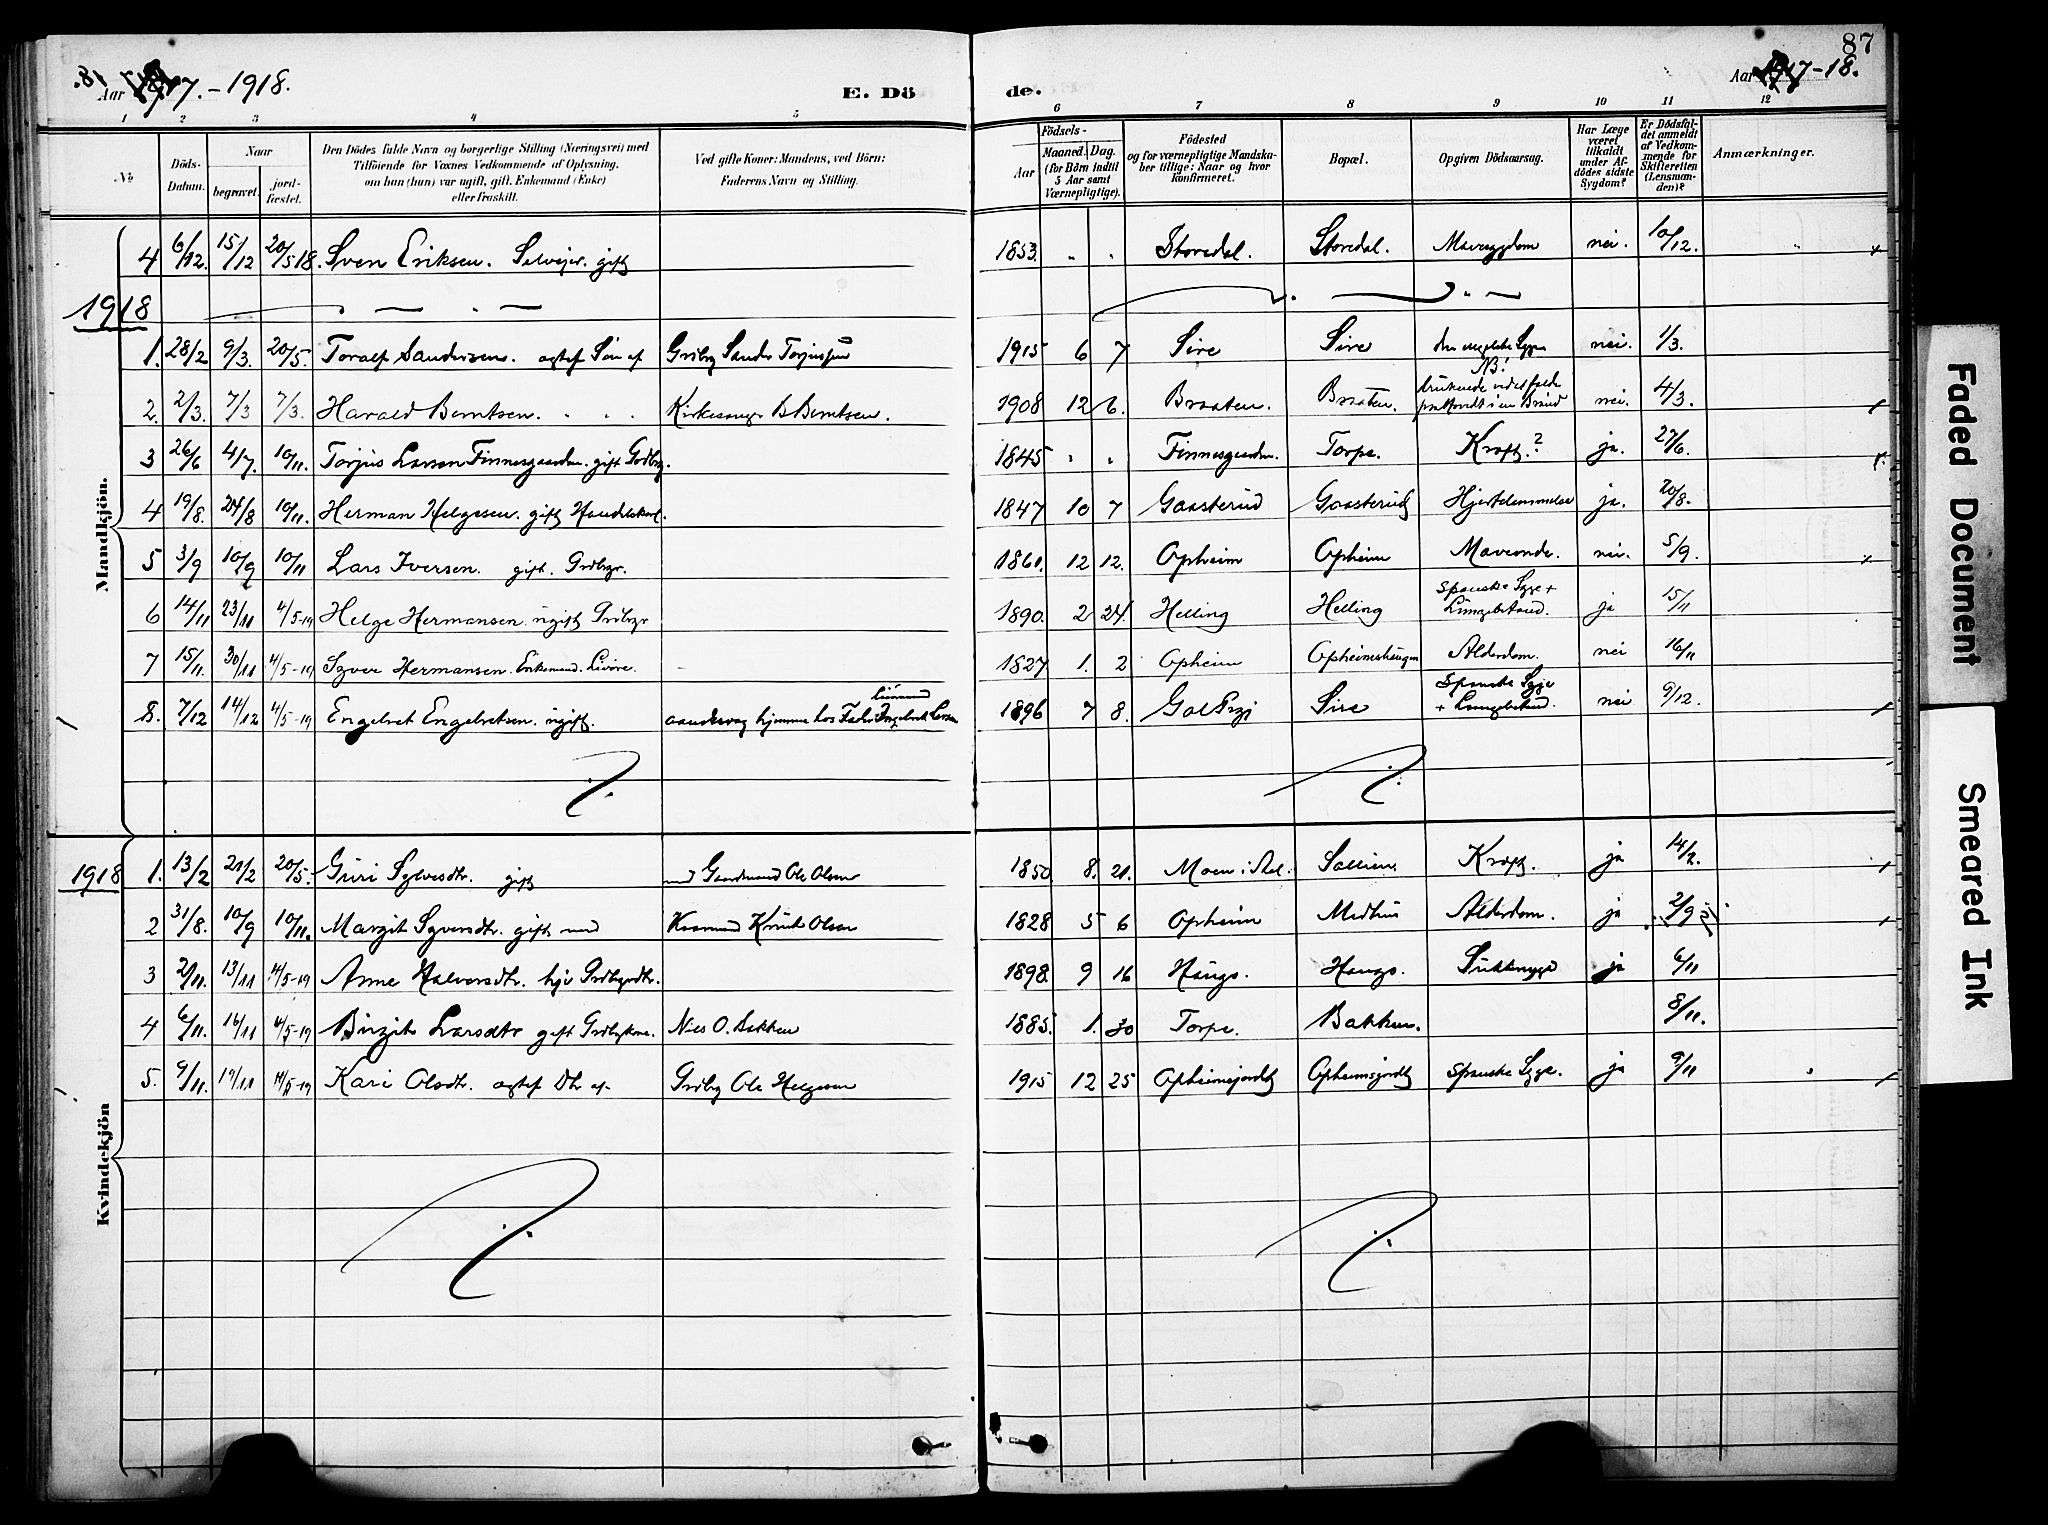 87
Aar 1917.-1918.
E. Dö
de.
Aar 1917-18.
1 2 3 4 5 6 7 8 9 10 11 12
No
Döds-Datum.
Naar
begravet.
jord-fæstet.
Den Dödes fulde Navn og borgerlige Stilling (Næringsvei) med
Tilföiende for Voxnes Vedkommende af Oplysning,
om han (hun) var ugift, gift, Enkemand (Enke)
eller fraskilt.
Ved gifte Koner: Mandens, ved Börn:
Faderens Navn og Stilling.
Födsels-
Aar
Maaned.
Dag.
(for Börn indtil
5 Aar samt
Værnepligtige).
Födested
og for værnepligtige Mandska-
ber tillige: Naar og hvor
konfirmeret.
Bopæl.
Opgiven Dödsaarsag.
Har Læge
været
tilkaldt
under Af-
dödes sidste
Sygdom?
Er Dödsfal-
det anmeldt
af Vedkom-
mende for
Skifteretten
(Lensman-
den)?
Anmærkninger.
Mandkjön.
4 6/12. 15/12 20/5 18. Sven Eriksen. Selveier. gift 1853. " . Storedal. Storedal. Mavesygdom nei. 10/12.
1918
1. 28/2 9/3. 20/5. Toralf Sandersens. ægtef Søn af Grdbrg Sander Torjussen 1915 6 7 Sire Sire den engelske Syge nei. 1/3.
NB!
2. 2/3. 7/3 7/3. Harald Berntsen. " " Kirkesanger B Berntsen. 1908 12 6. Braaten. Braaten. druknede ved at falde i en Brønd nei. 4/3.
3 26/6 4/7. 10/11. Torjus Larsen Finnesgaarden. gift Grdbrg. 1845 " " Finnesgaarden. Torpe. Kræft? ja. 27/6.
4 19/8. 24/8 10/11. Herman Helgesen. gift Handelskarl. 1847 10 7 Gaasterud Gaasterud Hjertelammelse ja. 20/8.
5 3/9 10/9 10/11 Lars Iversen. gift. Grdbrgr. 1861. 12 12. Opheim Opheim Maveonde. nei. 5/9.
6 14/11 23/11 4/5-19 Helge Hermansen. ugift Grdbrgr 1890. 2 24. Helling Helling Spanske Syge + Lungebetænd. ja 15/11
7 15/11. 30/11 4/5-19 Syver Hermansen. Enkemand. Livøre. - 1827 1. 2 Opheim Opheimshaugen Alderdom. nei 16/11
8. 7/12 14/12 4/5-19 Engebret Engebretsen. ugift. aandssvag hjemme hos Fader Engebret Larsen 1896 7 8. Sire Spanske Syge + Lungebetænd. nei 9/12.
1918
Kvindekjön
1. 13/2 21/2 20/5. Guri Sylvesdtr. gift med Gaardmand Ole Olsen 1850 8. 21. Moen i Aal. Kræft. ja 14/2.
2 31/8. 10/9 10/11. Margit Syversdtr. gift med Knut Olsen 1828 5 6 Opheim Medhus Alderdom. ja 2/9
3 2/11. 13/11 4/5-19 Anne Halvorsdtr. hje Grdbrgrdtr. 1898. 9 16 Haugs. Haugs. Sukkersyge ja 6/11
4 6/11. 16/11 4/5-19 Birgit Larsdtr gift Grdbrgkone. Nils O. Bakken 1885. 1. 30 Torpe. Bakken. 8/11.
5. 9/11. 19/11 4/5-19 Kari Olsdtr. ægtef Dtr af Grdbrg Ole Helgesen 1915 12 25 Opheimsjordet Opheimsjordet Spanske Syge. ja 9/11
Faded Document
Smeared Ink